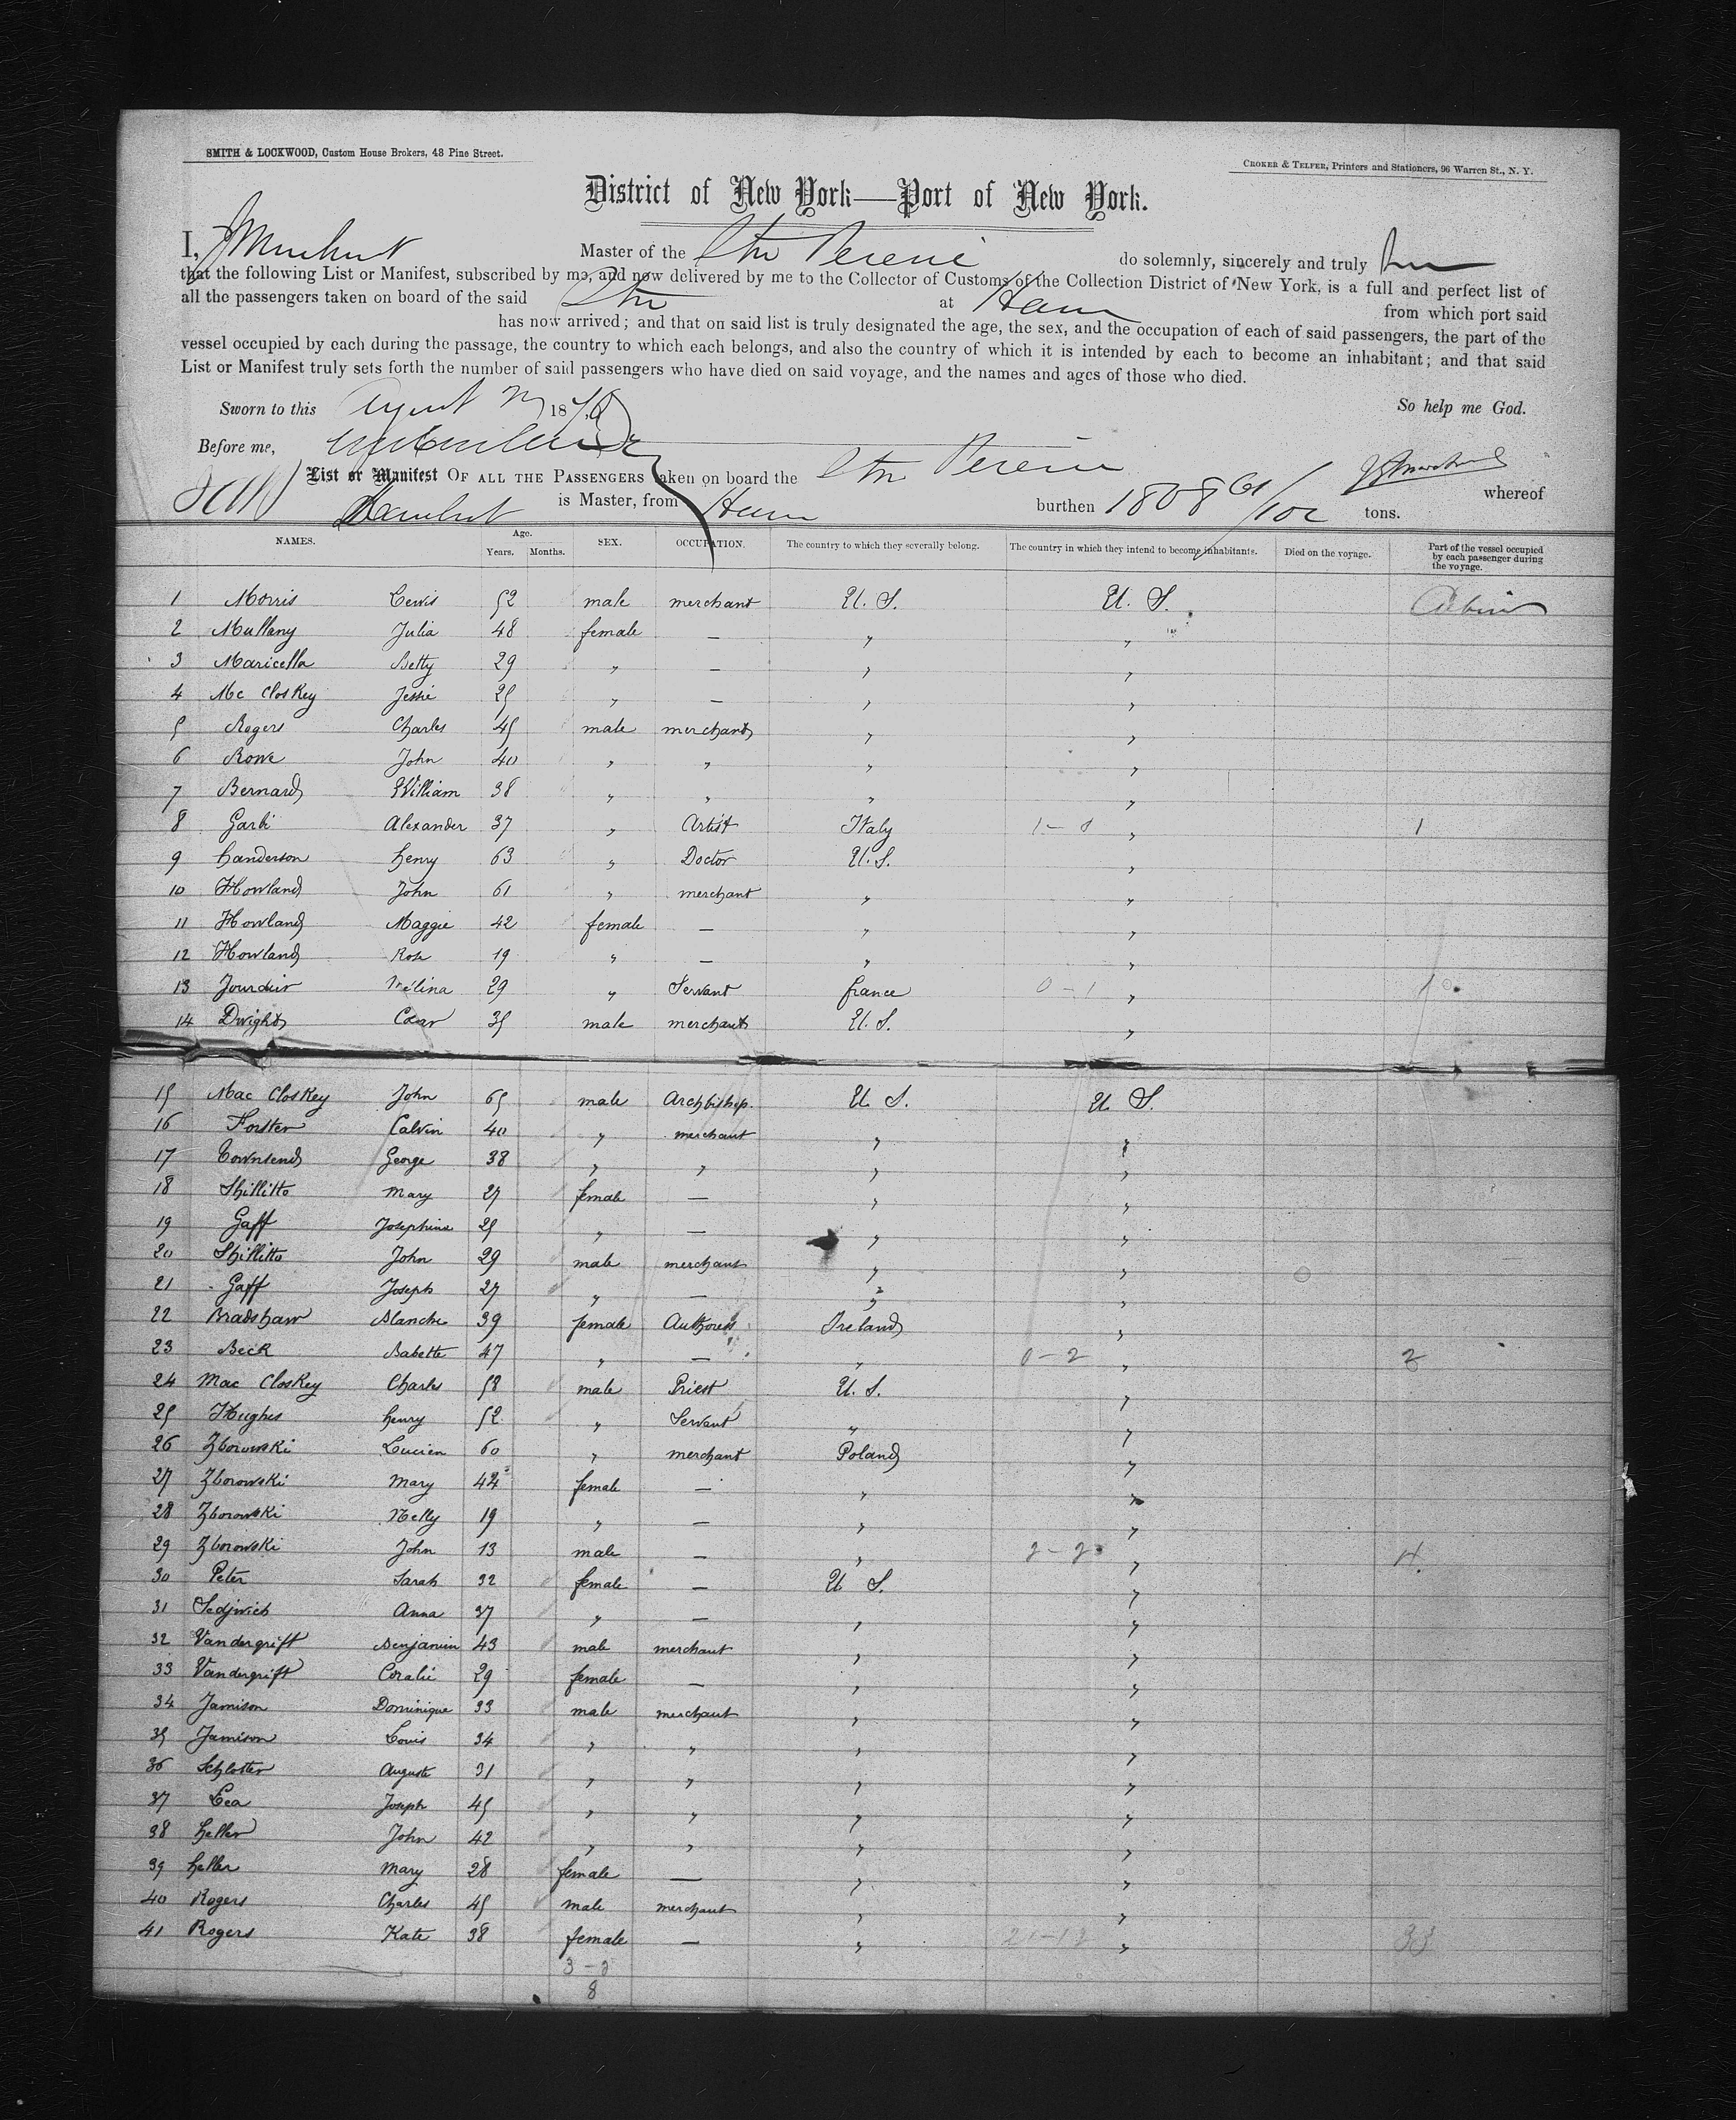 SMITH & LOCKWOOD, Custom House Brokers, 43 Pine Street.
CROKER & TELFER, Printers and Stationers, 96 Warren St., N. Y.
District of New York—Port of New York.
I, Master of the Str Pereire do solemnly, sincerely and truly
that the following List or Manifest, subscribed by me, and now delivered by me to the Collector of Customs of the Collection District of New York, is a full and perfect list of
all the passengers taken on board of the said Str at Havre from which port said
has now arrived; and that on said list is truly designated the age, the sex, and the occupation of each of said passengers, the part of the
vessel occupied by each during the passage, the country to which each belongs, and also the country of which it is intended by each to become an inhabitant; and that said
List or Manifest truly sets forth the number of said passengers who have died on said voyage, and the names and ages of those who died.
Sworn to this August 187 So help me God.
Before me,
List or Manifest OF ALL THE PASSENGERS taken on board the Str Pereire whereof
is Master, from Havre burthen 1808 61/100 tons.
NAMES. Age. Years. Months. SEX. OCCUPATION. The country to which they severally belong. The country in which they intend to become inhabitants. Died on the voyage. Part of the vessel occupied by each passenger during the voyage.
1 Morris Lewis 52 male merchant U. S. U. S. Cabin
2 Mullany Julia 48 female — " "
3 Maricella Betty 29 " — " "
4 Mc Closkey Jessie 25 " — " "
5 Rogers Charles 45 male merchant " "
6 Rowe John 40 " " " "
7 Bernard William 38 " " " "
8 Garbi Alexander 37 " Artist Italy 1-0 " 1
9 Sanderson henry 63 " Doctor U. S. "
10 Howland John 61 " merchant " "
11 Howland Maggie 42 female — " "
12 Howland Rose 19 " — " "
13 Jourdier Mélina 29 " Servant france 0-1 " 1
14 Dwight 35 male merchant U. S. "
15 Mac Closkey John 65 male Archbishop. U. S. U. S.
16 Forster Calvin 40 " merchant " "
17 Townsend George 38 " " " "
18 Shillitto Mary 27 female — " "
19 Gaff Josephine 25 " — " "
20 Shillitto John 29 male merchant " "
21 Gaff Joseph 27 " — " "
22 Bradshaw Blanche 39 female Authoress Ireland "
23 Beck Babette 47 " — " 0-2 " 2
24 Mac Closkey Charles 58 male Priest U. S. "
25 Hughes henry 52 " Servant " "
26 Zborowski Lucien 60 " merchant Poland "
27 Zborowski Mary 44 female — " "
28 Zborowski Nelly 19 " — " "
29 Zborowski John 13 male — " 2-2 " 4
30 Peter Sarah 32 female — U. S. "
31 Sedjwich Anna 37 " — " "
32 Vandergrift Benjamin 43 male merchant " "
33 Vandergrift Coralie 29 female — " "
34 Jamison Dominique 33 male merchant " "
35 Jamison Louis 34 " " " "
36 Schlotter Auguste 31 " " " "
37 Lea Joseph 45 " " " "
38 heller John 42 " " " "
39 heller Mary 28 female — " "
40 Rogers Charles 45 male merchant " "
41 Rogers Kate 38 female — " 21-12 " 33
3-2
8